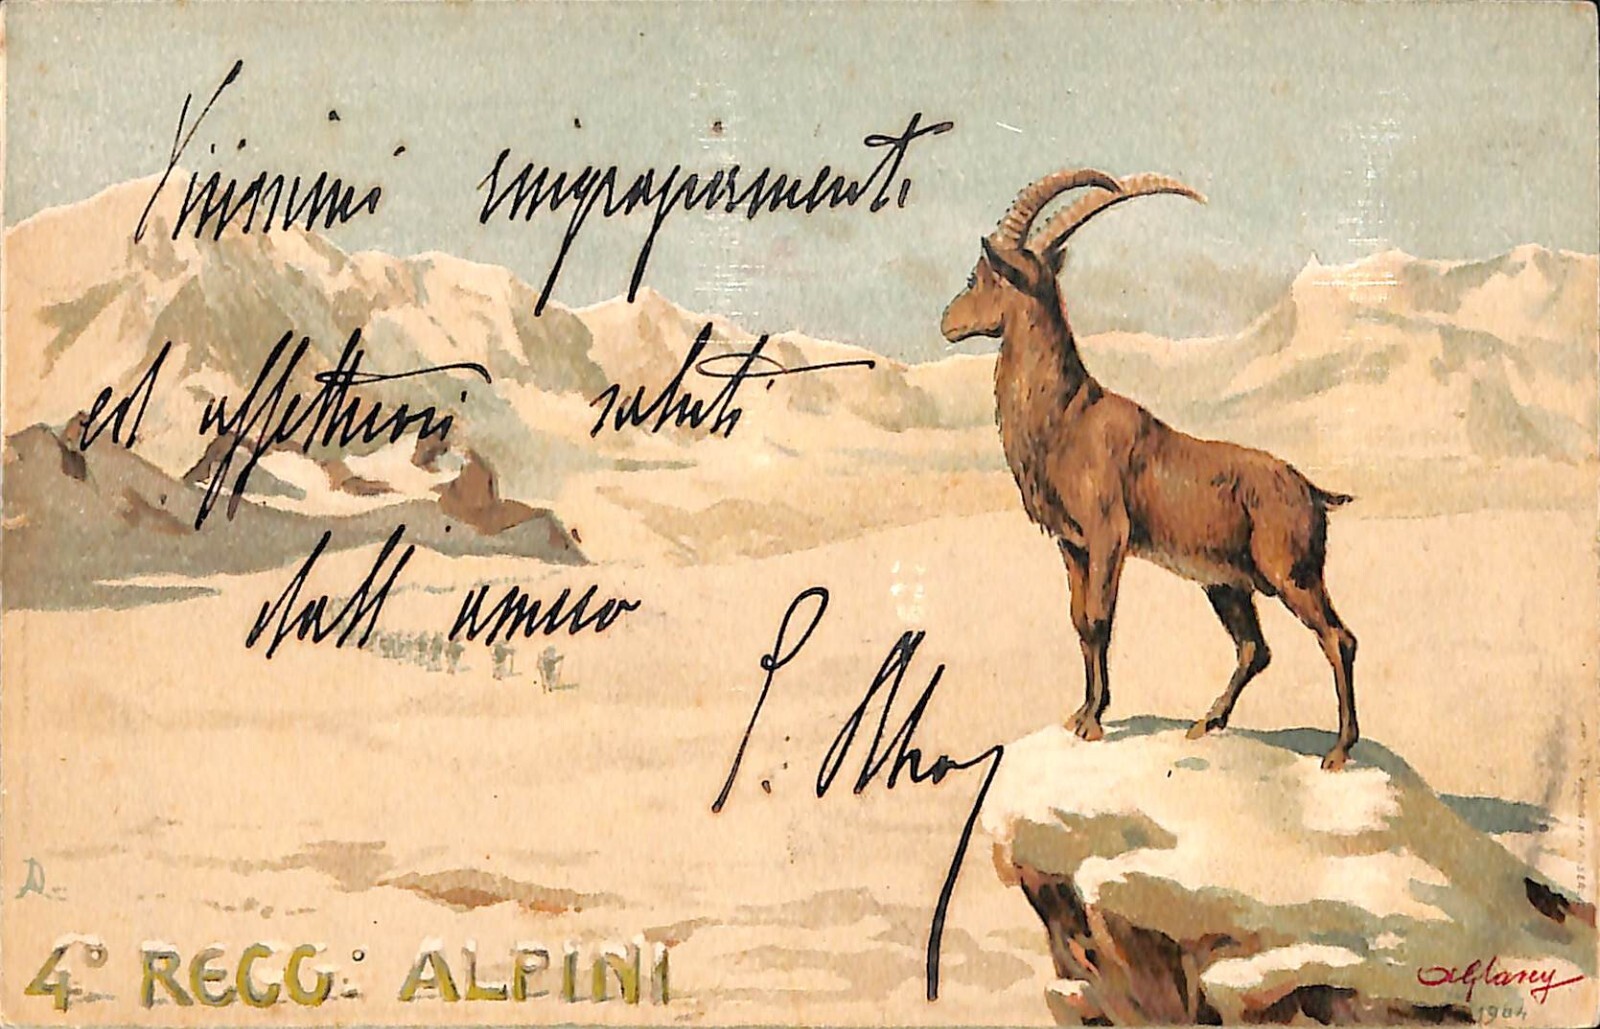 Vivissimi ringraziamenti
ed affettuosi saluti
dall' amico
P.
4° REGG: ALPINI
1904